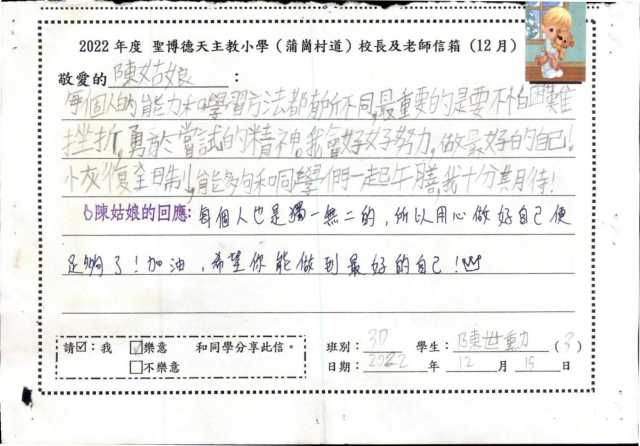 2022 年度 聖博德天主教小學(蒲崗村道)校長及老師信箱(12月)
敬愛的 陳姑娘 :
每個人的能力和學習方法都有所不同,最重要的是要不怕困難
挫折,勇於嘗試的精神。我會好好努力,做最好的自己!
恢復全日制,能夠和同學們一起午膳,我十分期待!
陳姑娘的回應: 每個人也是獨一無二的,所以用心做好自己便
足夠了!加油,希望你能做到最好的自己!
請☑:我 ☑樂意 和同學分享此信。
□不樂意
班別: 3D 學生: 陳世勳 (3)
日期: 2022 年 12 月 15 日